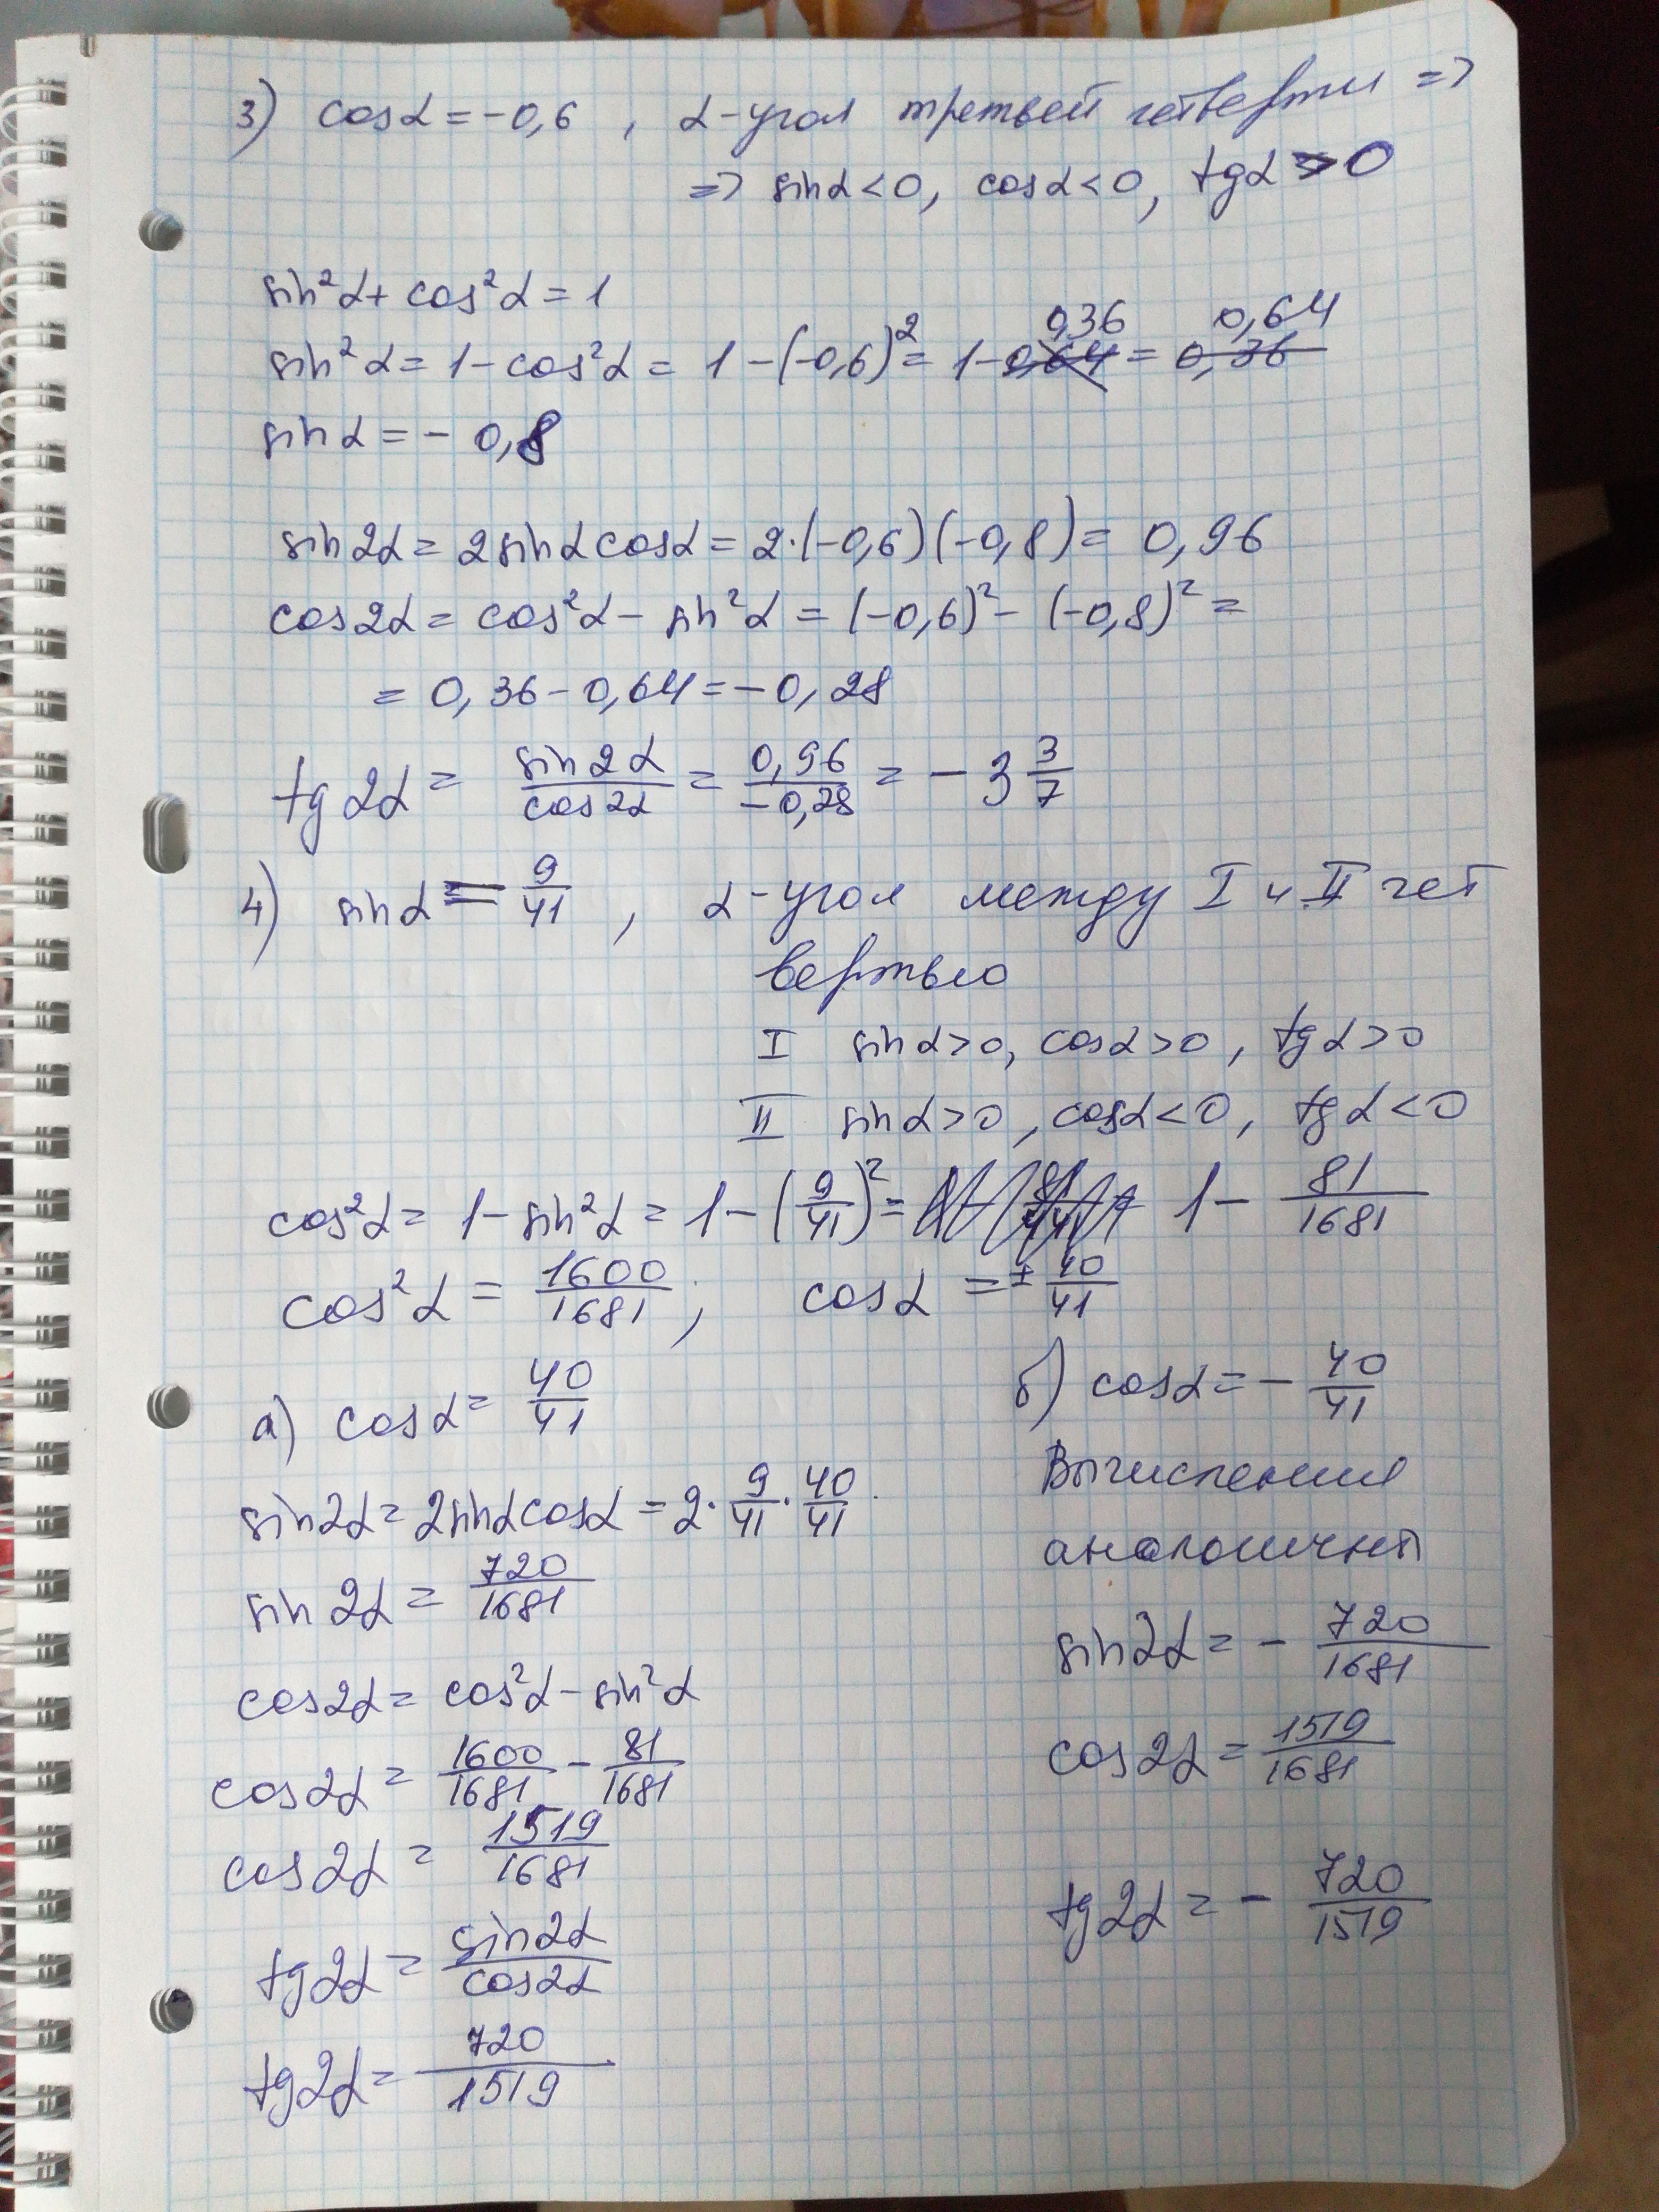 3) cosα = -0,6 , α-угол третьей четверти =>
=> sinα < 0, cosα < 0, tgα > 0
sin²α + cos²α = 1
0,36 0,64
sin²α = 1 - cos²α = 1 - (-0,6)² = 1 - 0,64 = 0,36
sinα = - 0,8
sin2α = 2sinαcosα = 2·(-0,6)(-0,8) = 0,96
cos2α = cos²α - sin²α = (-0,6)² - (-0,8)² =
= 0,36 - 0,64 = -0,28
tg2α = sin2α/cos2α = 0,96/-0,28 = - 3 3/7
4) sinα = 9/41 , α-угол между I и II чет
вертью
I sinα>0, cosα>0, tgα>0
II sinα>0, cosα<0, tgα<0
cos²α = 1 - sin²α = 1 - (9/41)² = 1 - 81/1681
cos²α = 1600/1681 ; cosα = ± 40/41
а) cosα = 40/41
sin2α = 2sinαcosα = 2·9/41·40/41
sin2α = 720/1681
cos2α = cos²α - sin²α
cos2α = 1600/1681 - 81/1681
cos2α = 1519/1681
tg2α = sin2α/cos2α
tg2α = 720/1519
б) cosα = - 40/41
Вычисления
аналоичны
sin2α = - 720/1681
cos2α = 1519/1681
tg2α = - 720/1519